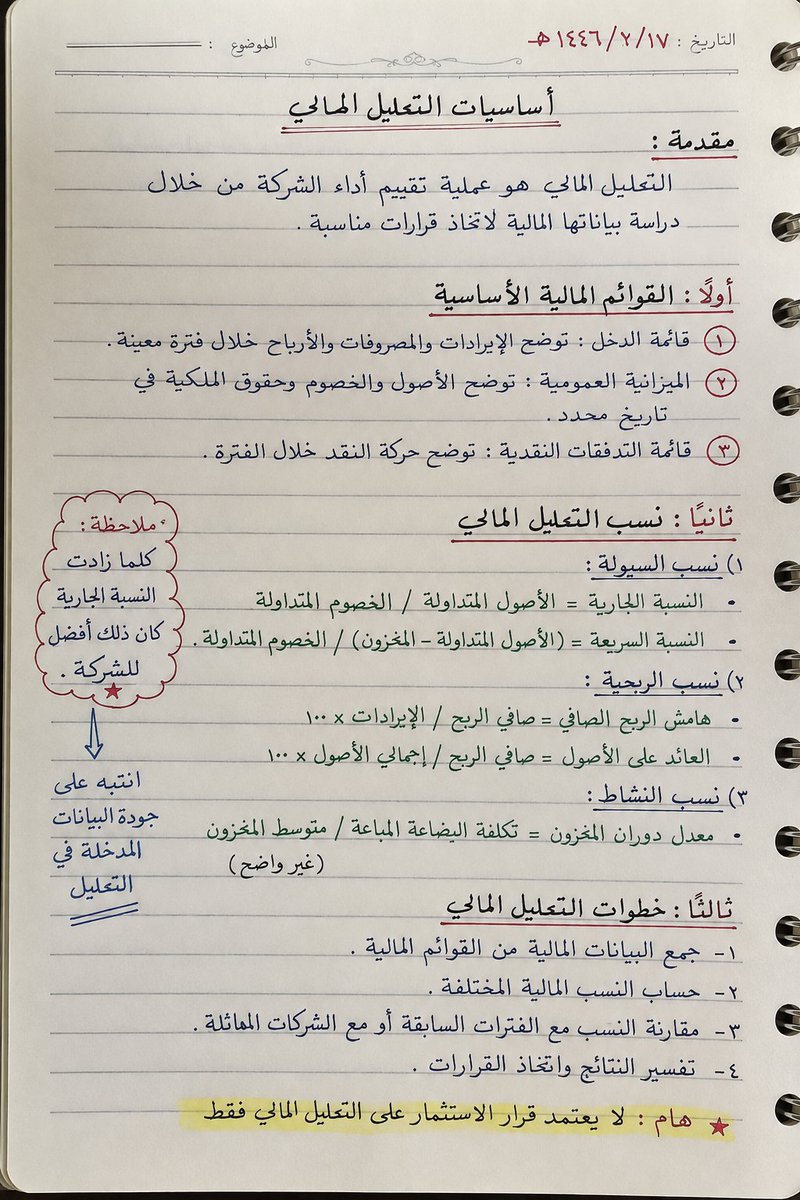 التاريخ : ١٤٤٦/٢/١٧ هـ
الموضوع :
أساسيات التحليل المالي
مقدمة :
التحليل المالي هو عملية تقييم أداء الشركة من خلال
دراسة بياناتها المالية لاتخاذ قرارات مناسبة .
أولًا : القوائم المالية الأساسية
١ قائمة الدخل : توضح الإيرادات والمصروفات والأرباح خلال فترة معينة .
٢ الميزانية العمومية : توضح الأصول والخصوم وحقوق الملكية في
تاريخ محدد .
٣ قائمة التدفقات النقدية : توضح حركة النقد خلال الفترة .
ثانيًا : نسب التحليل المالي
١) نسب السيولة :
• النسبة الجارية = الأصول المتداولة / الخصوم المتداولة
• النسبة السريعة = (الأصول المتداولة – المخزون) / الخصوم المتداولة .
٢) نسب الربحية :
• هامش الربح الصافي = صافي الربح / الإيرادات × ١٠٠
• العائد على الأصول = صافي الربح / إجمالي الأصول × ١٠٠
٣) نسب النشاط :
• معدل دوران المخزون = تكلفة البضاعة المباعة / متوسط المخزون
(غير واضح)
ملاحظة :
كلما زادت
النسبة الجارية
كان ذلك أفضل
للشركة .
★
انتبه على
جودة البيانات
المدخلة في
التحليل
ثالثًا : خطوات التحليل المالي
١- جمع البيانات المالية من القوائم المالية .
٢- حساب النسب المالية المختلفة .
٣- مقارنة النسب مع الفترات السابقة أو مع الشركات المماثلة .
٤- تفسير النتائج واتخاذ القرارات .
★ هام : لا يعتمد قرار الاستثمار على التحليل المالي فقط